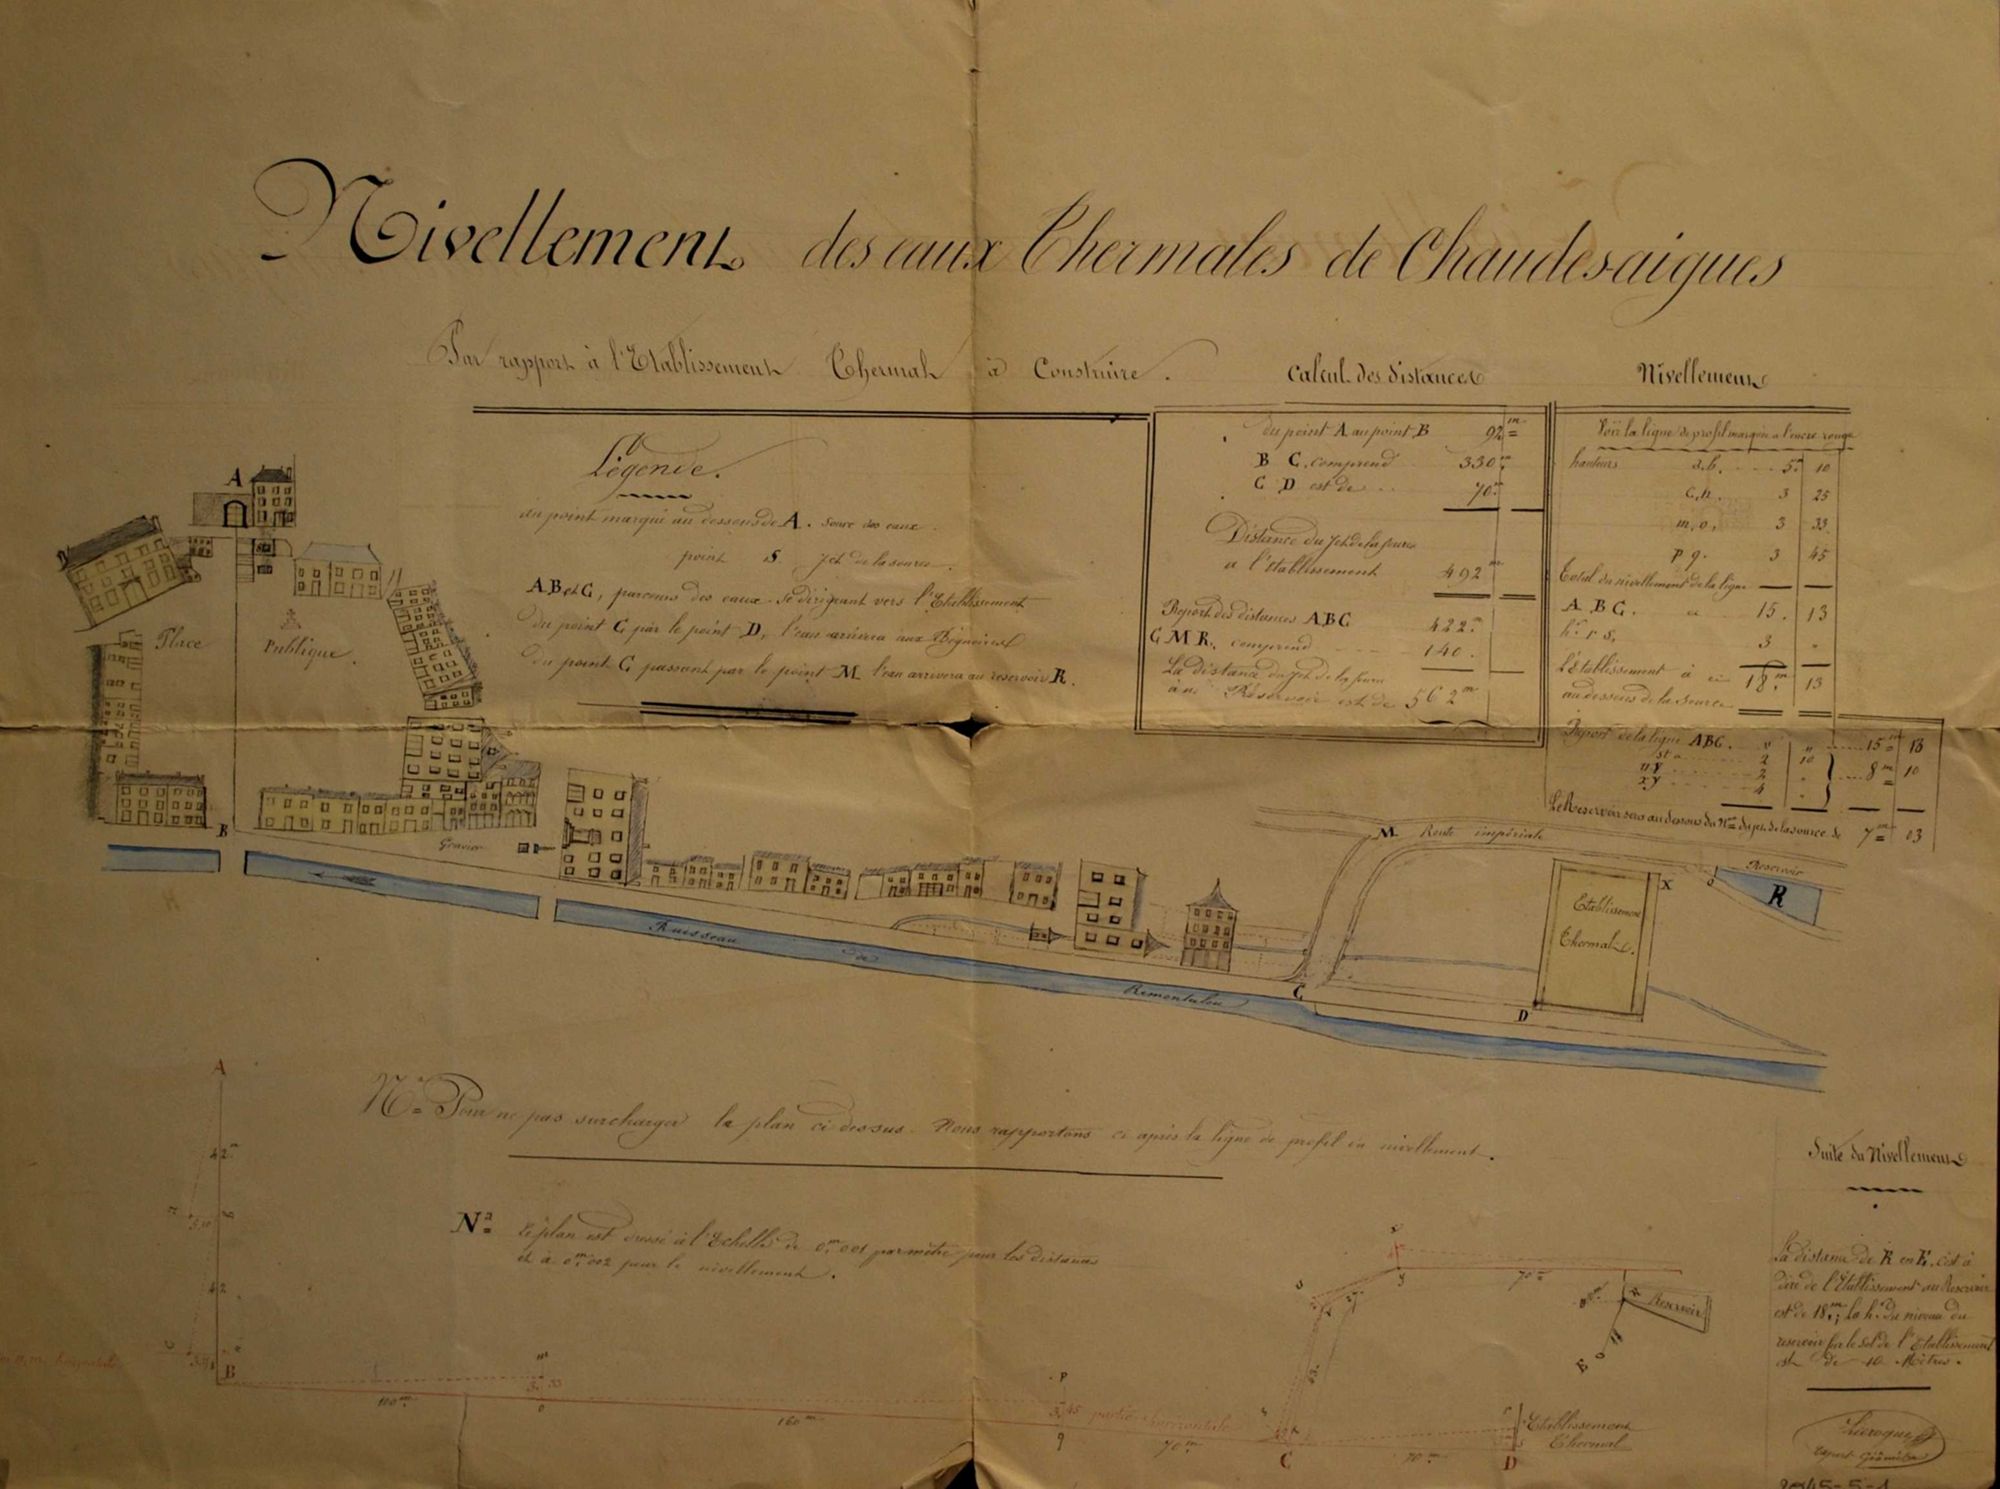 Nivellement des eaux Thermales de Chaudesaigues
Par rapport à l'Etablissement Thermal à Construire.
Légende.
du point marqué au dessous de A. Sourc des eaux
point S Jet de la source.
A B et C, parcours des eaux se dirigeant vers l'Etablissement
du point C par le point D, l'eau arrivera aux Bignoires
du point C passant par le point M l'eau arrivera au reservoir R.
Calcul des Distances
du point A au point B 92 m
B C. comprend 330 m
C D est de 70 m
Distance du Jet de la source
a l'établissement 492 m
Report des distances A B C 422 m
C M R. comprend 140.
La distance du Jet de la source
au Réservoir est de 562 m
Nivellement
Voir la ligne de profil marquée a l'encre rouge
hauteurs a.b. 5 m 10
c.n. 3 25
m.o. 3 33
p q. 3 45
Total du nivellement de la ligne
A B C. a 15. 13
hr r s, 3 "
L'Etablissement à 18 m 13
au dessous de la source
Report de la ligne ABC. 15 m 13
st a 2 10
u v 2 " 8 m 10
x y 4 "
Le Reservoir sera au dessous du de la source de 7 m 03
A
Place Publique.
B
Gravier
Ruisseau de Remontalou
M Route impériale
C
D
Etablissement
Thermal.
X
Reservoir
R
Na Pour ne pas surcharger le plan ci dessus. Nous rapportons ci après la ligne de profil en nivellement.
Na Le plan est dressé à l'Echelle de 0 m 001 par mètre pour les distances
et à 0 m 002 pour le nivellement.
A
42 m
5,10
b
42
c
B
110 m
m
3. 33
o
160 m
p
3,45 partie horizontale
q
70 m
C
70 m
D
r
s
Etablissement
Thermal
x
y
70 m
R
Reservoir
E
Suite du Nivellement
La distance de R en E, c'est à
dire de l'Etablissement au Reservoir
est de 18 m; la hr du niveau du
reservoir sur le sol de l'Etablissement
est de 10 Mètres.
expert Géomètre
2045-5-1